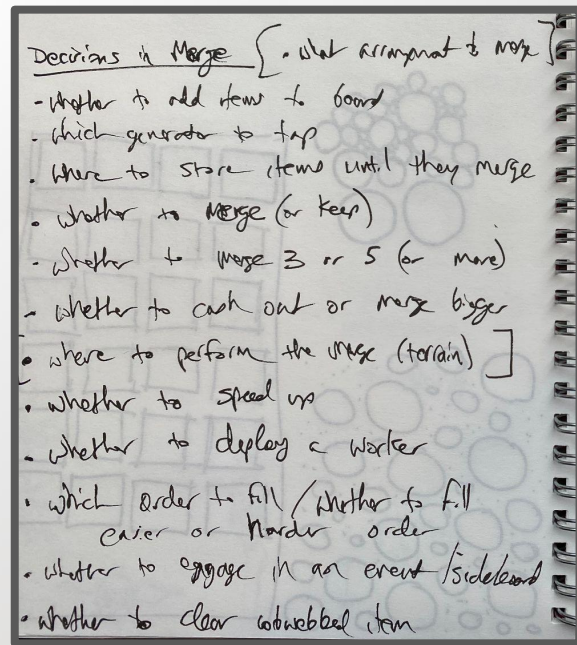 Decisions in Merge [ • what arrangement to merge ]
- whether to add items to board
• which generator to tap
• where to store items until they merge
• whether to merge (or keep)
- whether to merge 3 or 5 (or more)
- whether to cash out or merge bigger
[ • where to perform the merge (terrain) ]
• whether to speed up
• whether to deploy a worker
• which order to fill / whether to fill
easier or harder order
• whether to engage in an event / sideboard
• whether to clear cobwebbed item